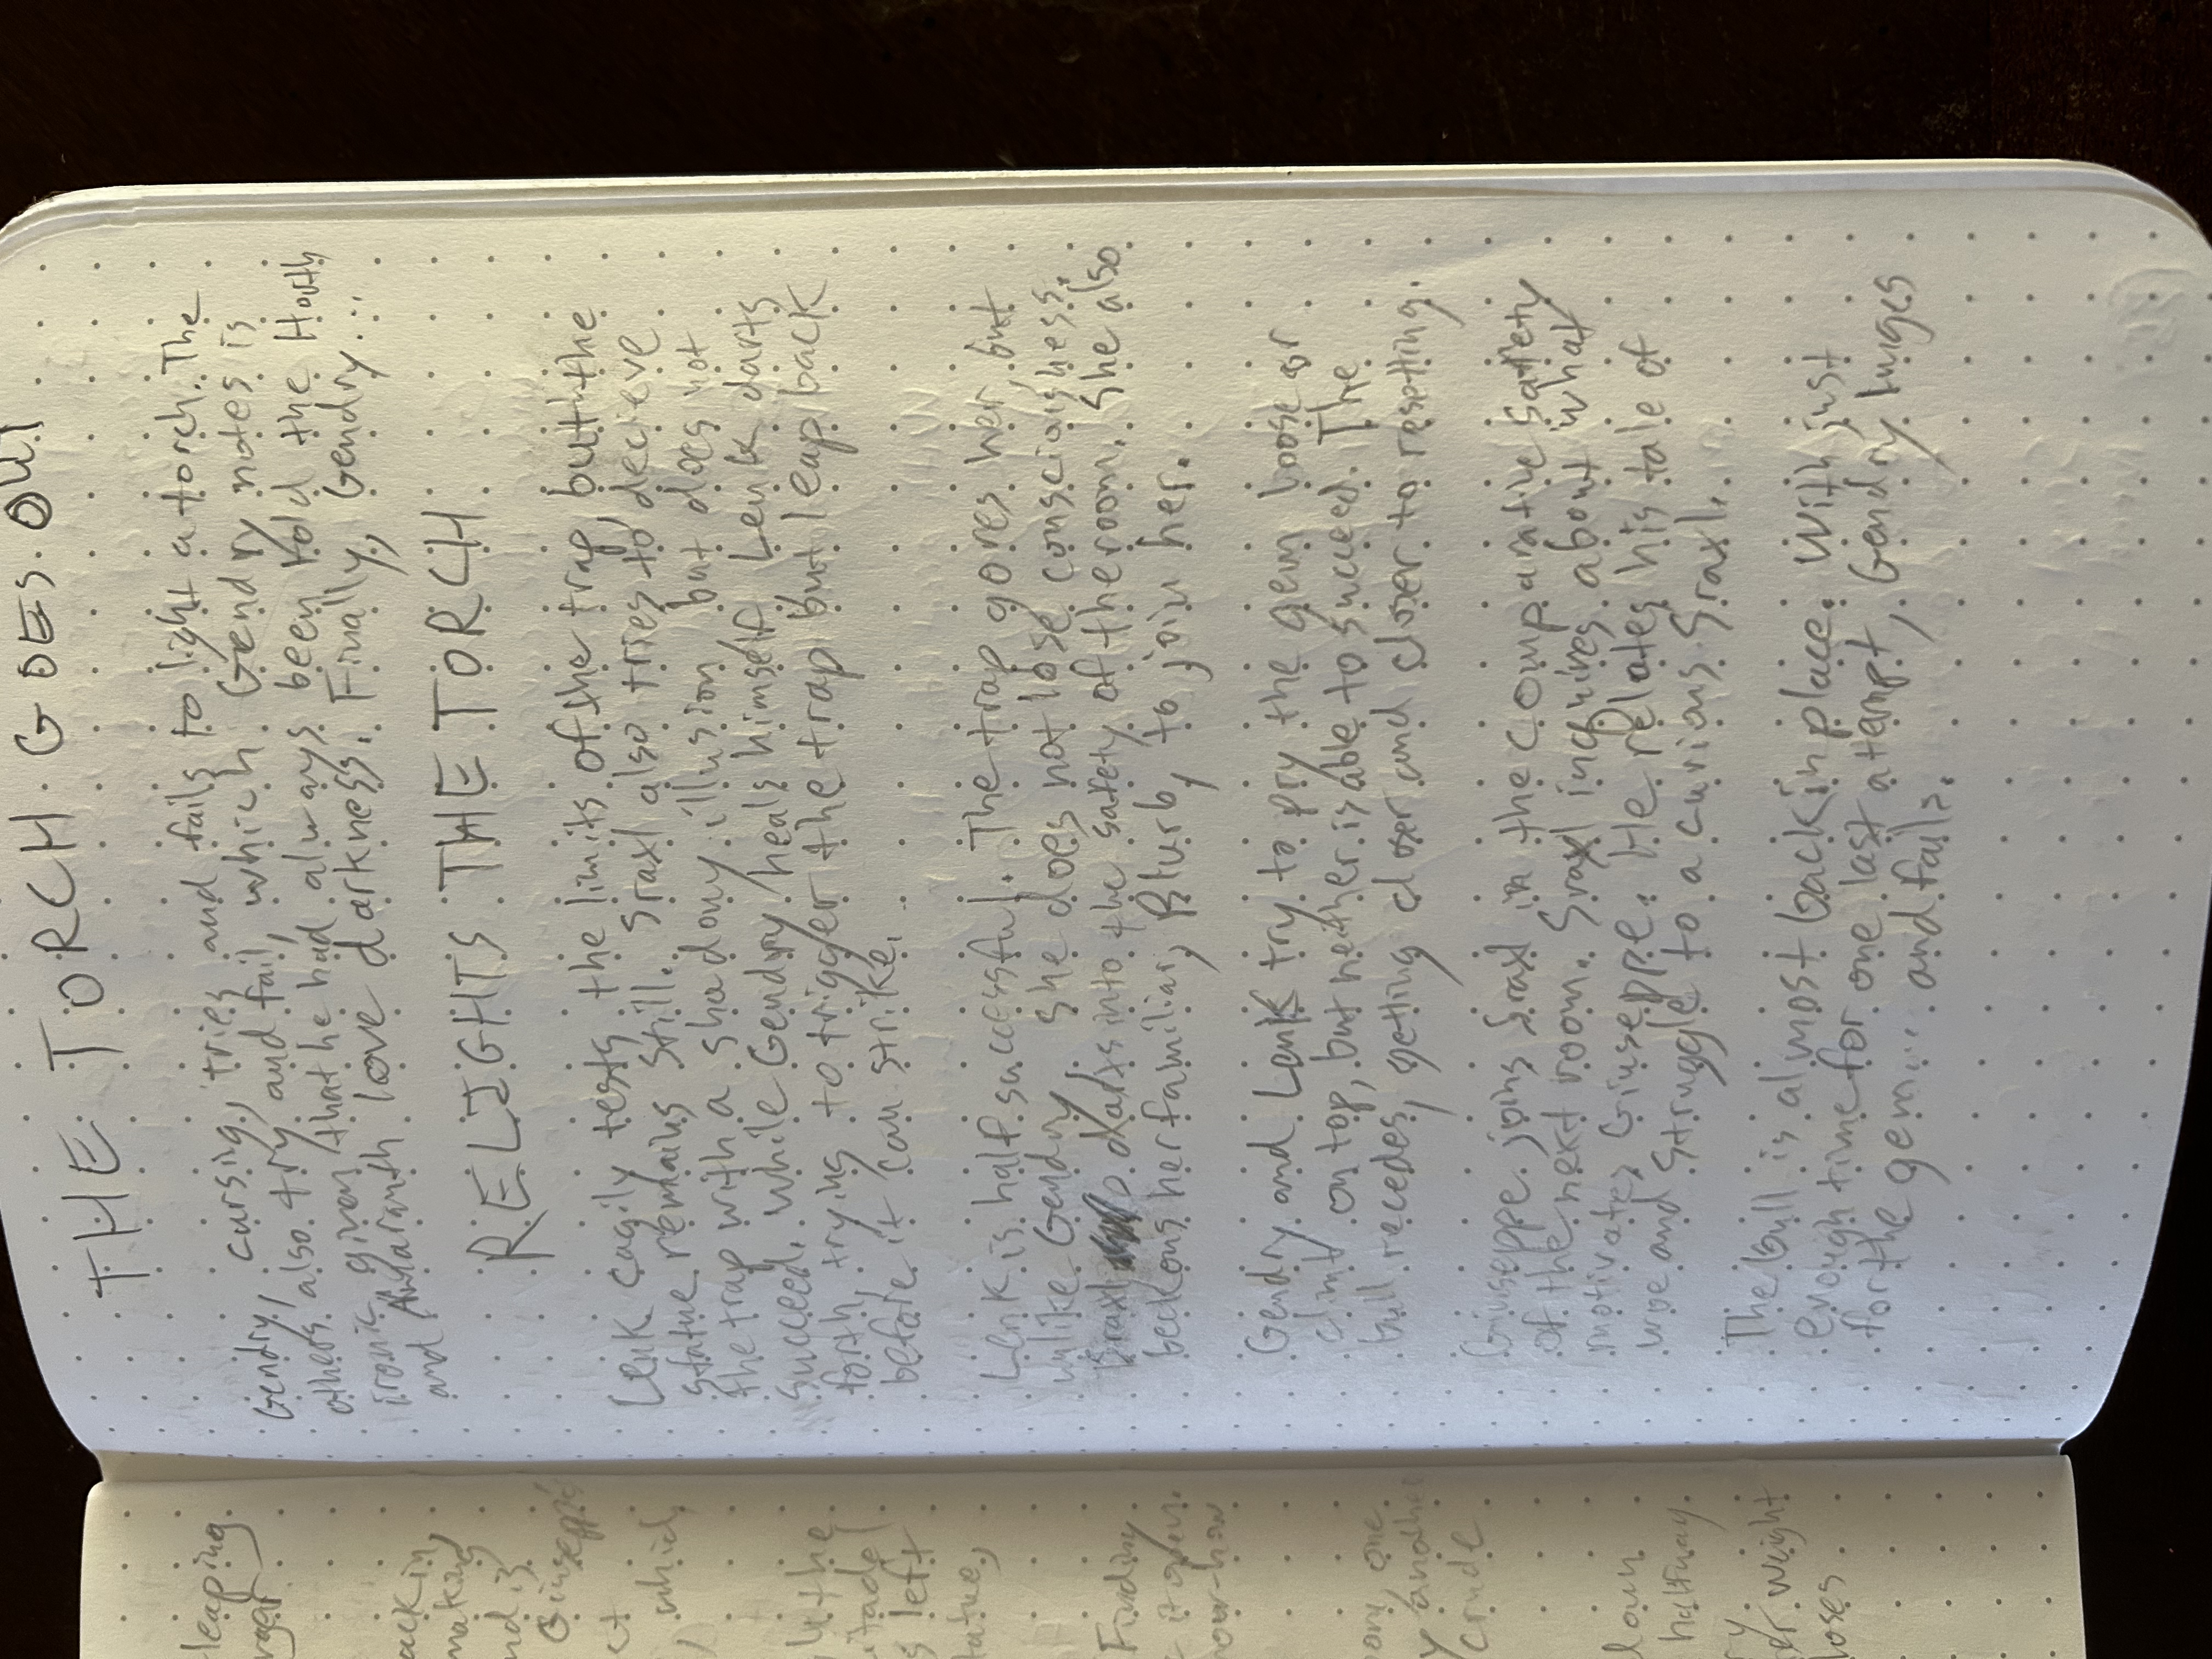 THE TORCH GOES OUT
Gendry, cursing, tries and fails to light a torch. The
others also try and fail, which Gendry notes is
ironic given that he had always been told the Hoth
and Amaranth love darkness. Finally, Gendry...
RELIGHTS THE TORCH
Lenk cagily tests the limits of the trap but the
statue remains still. Sraxl also tries to decieve
the trap with a shadowy illusion but does not
succeed. While Gendry heals himself Lenk darts
forth, trying to trigger the trap but leap back
before it can strike.
Lenk is half successful. The trap gores her but
unlike Gendry she does not lose consciousness.
Sraxl darts into the safety of the room. She also
beckons her familiar, Blurb, to join her.
Gendry and Lenk try to pry the gem loose or
climb on top, but neither is able to succeed. The
bull recedes, getting closer and closer to resetting.
Giuseppe joins Sraxl in the comparative safety
of the next room. Sraxl inquires about what
motivates Giuseppe. He relates his tale of
woe and struggle to a curious Sraxl.
The bull is almost back in place. With just
enough time for one last attempt, Gendry lunges
for the gem... and fails.
leaping
making
Giuseppe's
which
by the
left
statue,
Finding
it open.
any one
another
crude
down
halfway
weight
loses